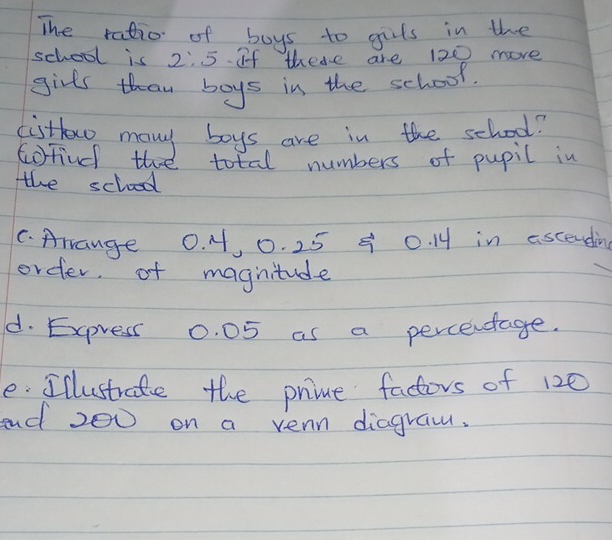 The ratio of boys to girls in the
school is 2:5. if there are 120 more
girls than boys in the school.
(i) How many boys are in the school?
(ii) Find the total numbers of pupil in
the school
c. Arrange 0.4, 0.25 & 0.14 in ascending
order. of magnitude
d. Express 0.05 as a percentage.
e. Illustrate the prime factors of 120
and 200 on a venn diagram.